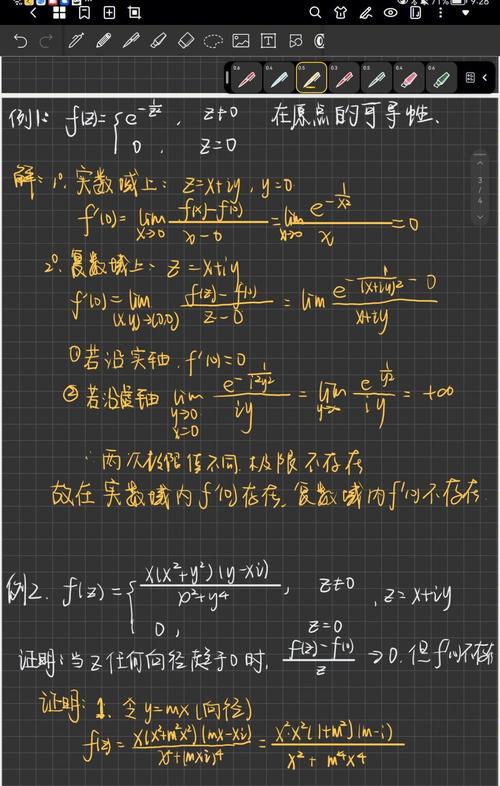 71% 9:28
0.6 0.4 0.5 0.5 0.5 0.4 0.6
3/4
例1: f(z)={e^{-\frac{1}{z^2}}, z≠0 在原点的可导性.
0, z=0
解: 1°. 实数域上: z=x+iy, y=0
f'(0)=lim_{x→0} \frac{f(x)-f(0)}{x-0}=lim_{x→0} \frac{e^{-\frac{1}{x^2}}}{x}=0
2°. 复数域上: z=x+iy
f'(0)=lim_{(x,y)→(0,0)} \frac{f(z)-f(0)}{z-0}=lim \frac{e^{-\frac{1}{(x+iy)^2}}-0}{x+iy}
①若沿实轴, f'(0)=0
②若沿虚轴 lim_{y→0, x=0} \frac{e^{-\frac{1}{i^2y^2}}}{iy}=lim \frac{e^{\frac{1}{y^2}}}{iy}=+∞
∴两次极限值不同, 极限不存在
故在实数域内f'(0)存在, 复数域内f'(0)不存在.
例2. f(z)={\frac{x(x^2+y^2)(y-xi)}{x^2+y^4}, z≠0 , z=x+iy
0, z=0
证明: 当z任何向径趋于0时, \frac{f(z)-f(0)}{z}→0, 但f'(0)不存在
证明: 1. 令y=mx(向径)
f(z)=\frac{x(x^2+m^2x^2)(mx-xi)}{x^2+(mx)^4}=\frac{x^2·x^2(1+m^2)(m-i)}{x^2+m^4x^4}